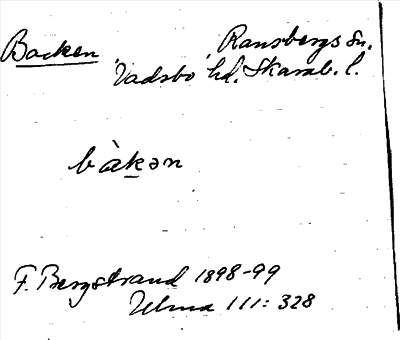 Backen Ransbergs sn.
Vadsbo hd. Skarab. l.
bàkən
F. Bergstrand 1898-99
Ulma 111: 328